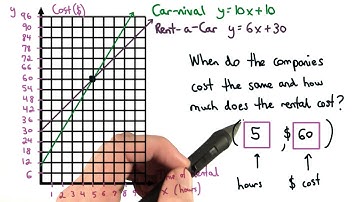 y
Cost($)
Car-nival y=10x+10
Rent-a-Car y=6x+30
96
90
84
78
72
66
60
54
48
42
36
30
24
18
12
6
1 2 3 4 5 6 7 8 9
of rental
x (hours)
When do the companies
cost the same and how
much does the rental cost?
( 5 , $ 60 )
hours $ cost